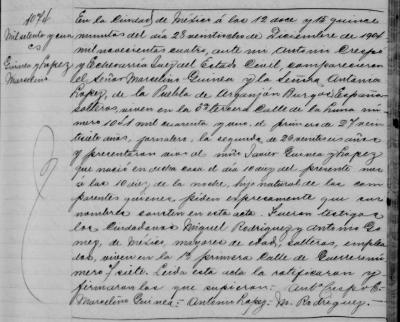 1074
Mil setenta y cua
Guinea y Lopez
Marcelino
En la Ciudad de México á las 12 doce y 15 quince
minutos del día 23 veintitres de Diciembre de 1904
mil novecientos cuatro, ante mi Antonio Crespo
y Echevarria Juez del Estado Civil, comparecieron
el Señor Marcelino Guinea y la Señora Antonia
Lopez, de la Puebla de Arganzón Burgos España
solteros, viven en la Calle de la Luna nú
mero cuarenta y uno, el primero de 27 vein
tisiete años, jornalero, la segunda de 26 veintiseis años
y presentaron al niño Javier Guinea y Lopez
que nació en dicha casa el día 10 diez del presente mes
á las 10 diez de la noche, hijo natural de los com
parentes quienes piden expresamente que sus
nombres consten en esta acta. Fueron testigos
los Ciudadanos Miguel Rodriguez y Antonio Go
mez, de México, mayores de edad, solteros, emplea
dos, viven en la 1ª primera Calle de Guerrero nú
mero 7 siete. Leida esta acta la ratificaron y
firmaron los que supieron: Antº Crespo E=
Marcelino Guinea= Antonia Lopez= M. Rodriguez=